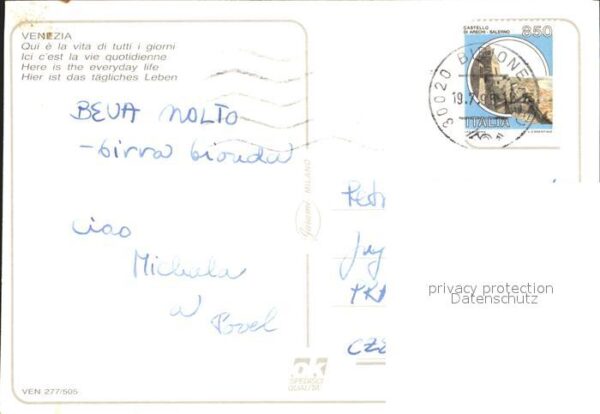 VENEZIA
Qui è la vita di tutti i giorni
Ici c'est la vie quotidienne
Here is the everyday life
Hier ist das tägliches Leben
CASTELLO
DI ARECHI - SALERNO
850
30020
19.7.9
ITALIA
BEVA MOLTO
-birra bionda
MILANO
Ciao
Michela
a Pavel
privacy protection
Datenschutz
OK
SPEDISCI
QUALITÀ
VEN 277/505